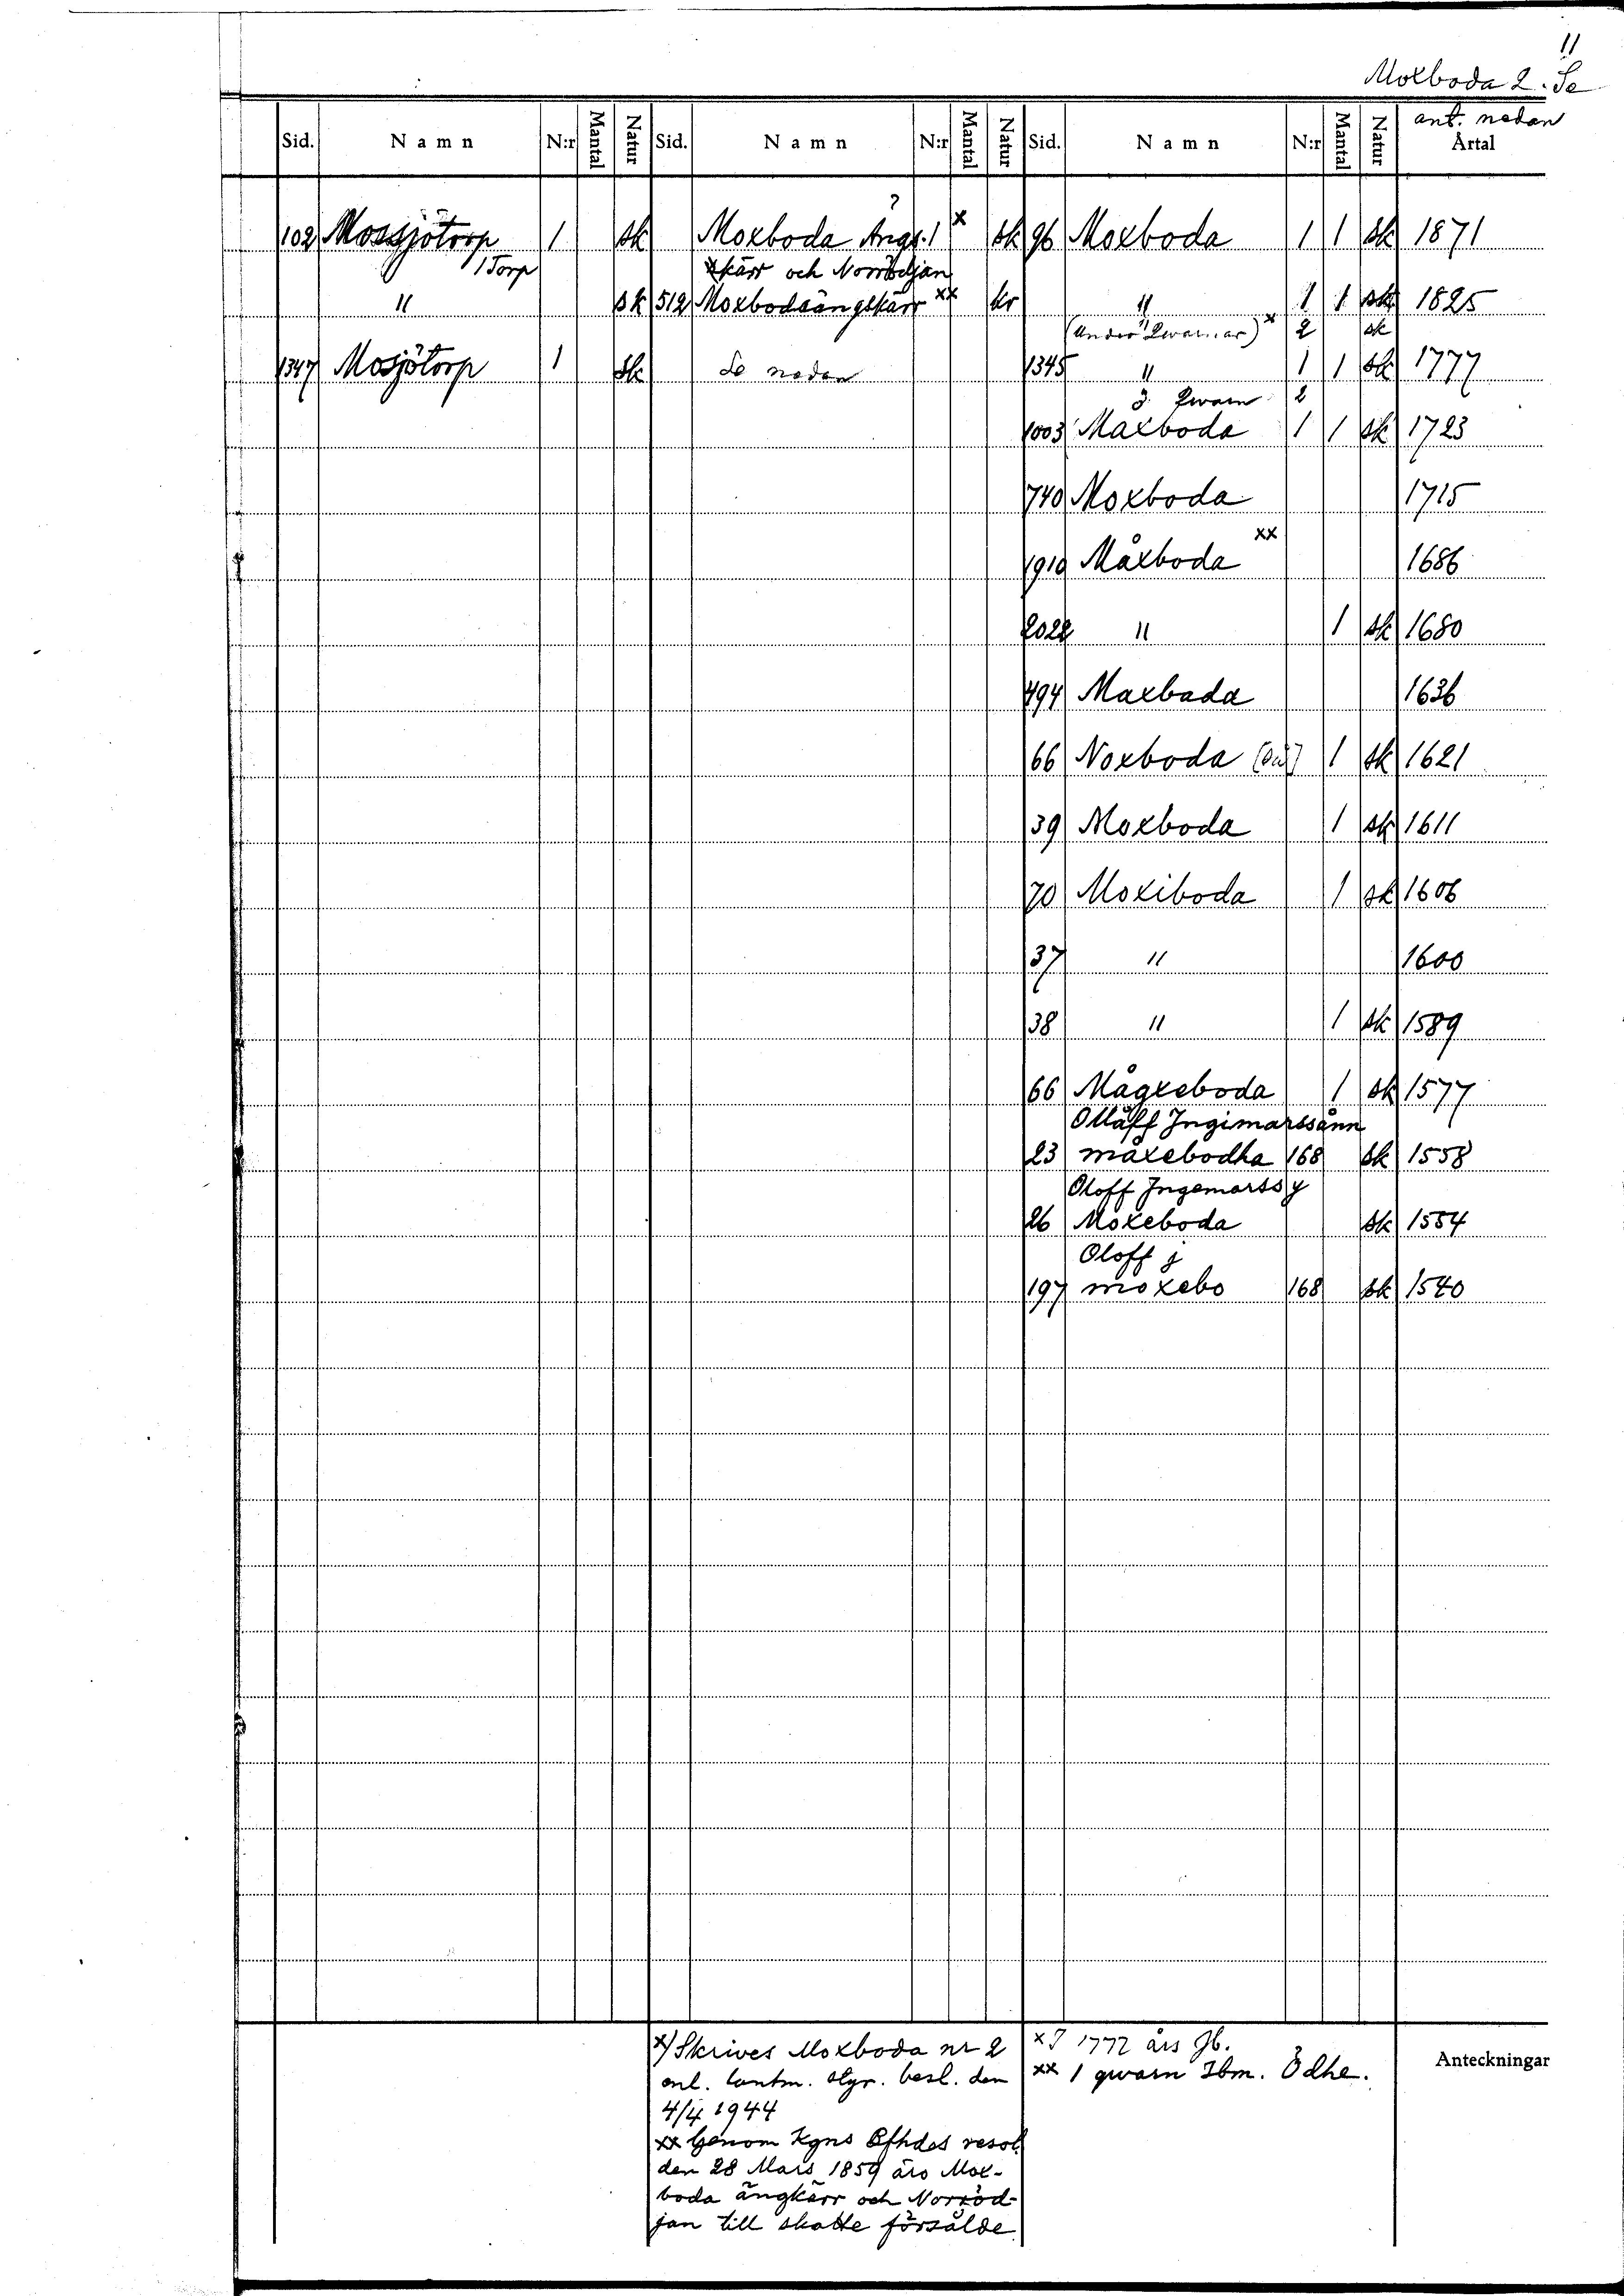 11
Moxboda 2. Se
ant. nedan
Sid. Namn N:r Mantal Natur Sid. Namn N:r Mantal Natur Sid. Namn N:r Mantal Natur Årtal
102 Mossjötorp 1 sk Moxboda Ängs. ? 1 x sk 96 Moxboda 1 1 sk 1871
1 Torp kärr och Norrödjan
" sk 512 Moxbodaängskärr xx kr " 1 1 sk 1825
(Under Qwarnar) x 2 sk
1347 Mosjötorp 1 sk Se nedan 1345 " 1 1 sk 1777
Qwarn 2
1003 Maxboda 1 1 sk 1723
740 Moxboda 1715
1910 Måxboda xx 1686
2022 " 1 sk 1680
494 Maxbada 1636
66 Noxboda 1 sk 1621
39 Moxboda 1 sk 1611
70 Moxiboda 1 sk 1606
37 " 1600
38 " 1 sk 1589
66 Mågxeboda 1 sk 1577
Olåff Ingimarssånn
23 måxebodha 168 sk 1558
Oloff Ingemarss y
26 Moxeboda sk 1554
Oloff j
197 moxebo 168 sk 1540
x) Skrives Moxboda nr 2
enl. lantm. styr. besl. den
4/4 1944
xx Genom Kgns Bfhdes resol
den 28 Mars 1859 äro Mox-
boda ängkärr och Norröd-
jan till skatte försålde
x I 1772 års Jb.
xx 1 qwarn Ibm. Ödhe.
Anteckningar